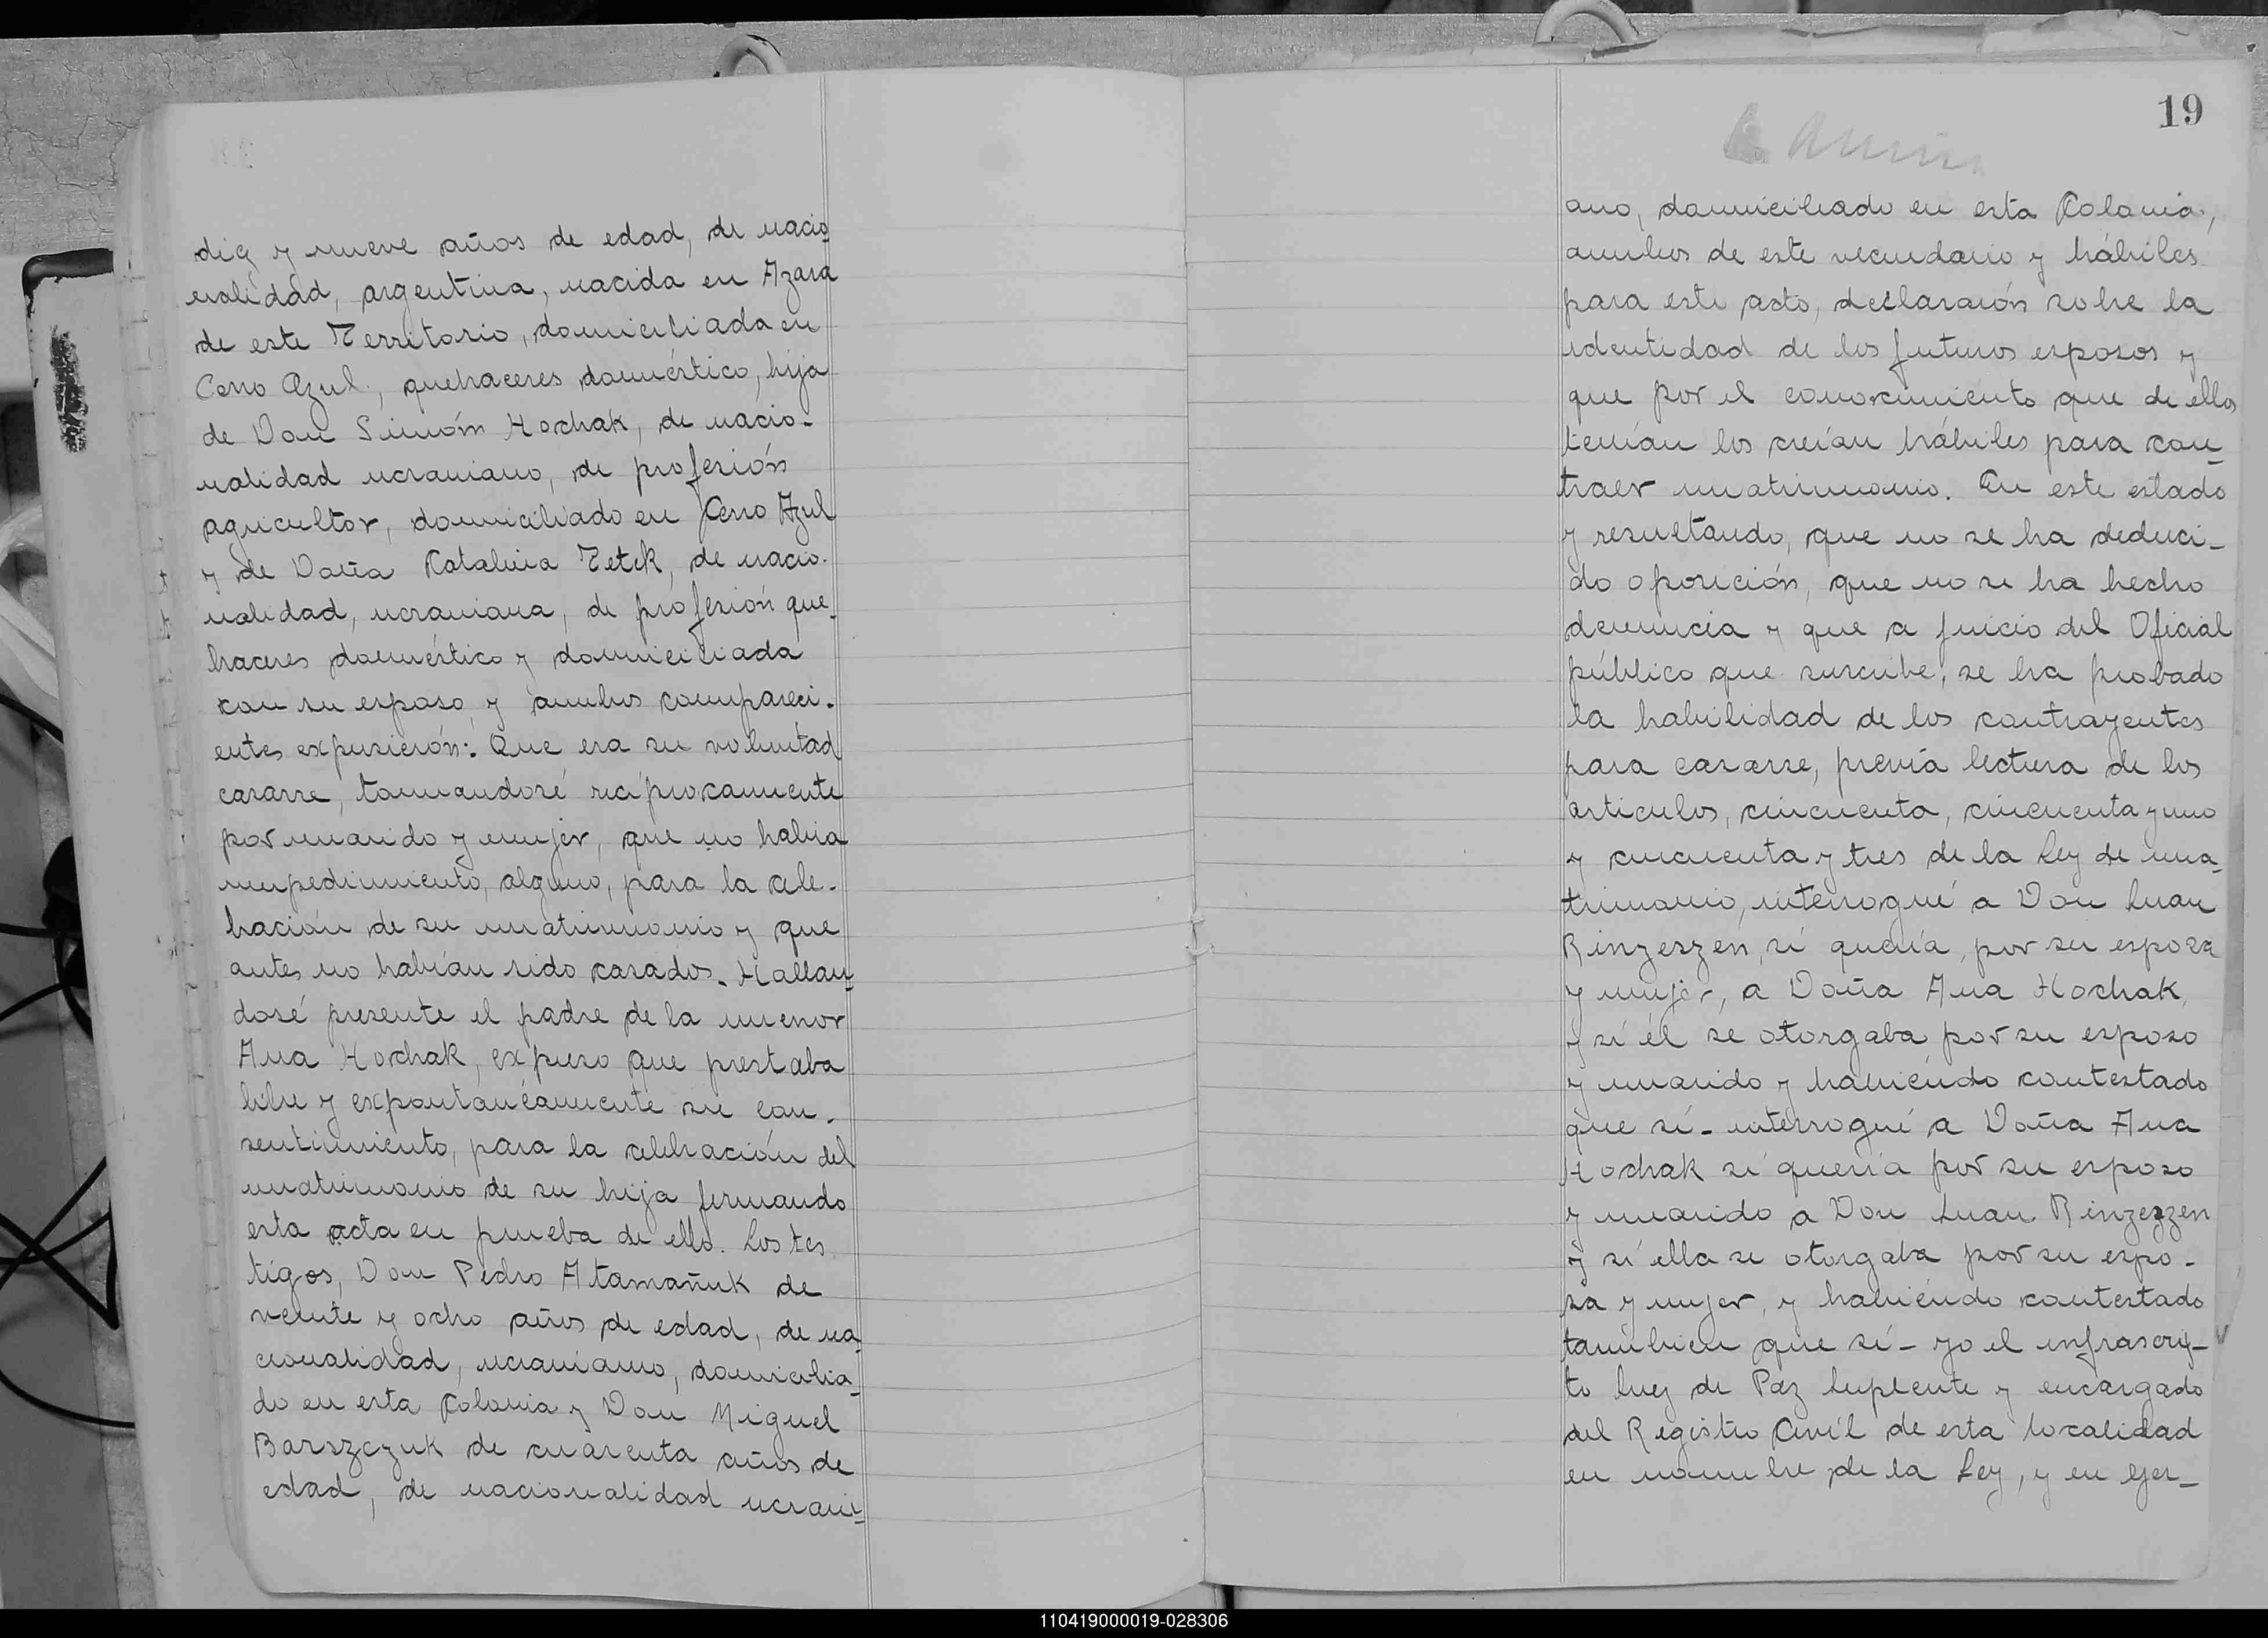 diez y nueve años de edad, de nacio
nalidad, argentina, nacida en Azara
de este Territorio, domiciliada en
Cerro Azul, quehaceres doméstico, hija
de Don Simóm Hochak, de nacio-
nalidad ucraniano, de profesión
agricultor, domiciliado en Cerro Azul
y de Doña Catalina Tetek, de nacio-
nalidad, ucraniana, de profesión que-
haceres doméstico y domiciliada
con su esposo, y ambos compareci-
entes expusierón: Que era su voluntad
casarse, tomandosé reciprocamente
por marido y mujer, que no habia
impedimiento, alguno, para la cele-
bración de su matrimonio y que
antes no habían sido casados. Hallan-
dosé presente el padre de la menor
Ana Hochak, expuso que prestaba
libre y expontanéamente su con-
sentimiento, para la celebración del
matrimonio de su hija firmando
esta acta en prueba de ello. Los tes
tigos, Don Pedro Atamañuk de
veinte y ocho años de edad, de na-
cionalidad, ucraniano, domicilia-
do en esta Colonia y Don Miguel
Barszczuk de cuarenta años de
edad, de nacionalidad ucrani-
19
ano, domiciliado en esta Colonia,
ambos de este vecindario y hábiles
para este acto, declararón sobre la
identidad de los futuros esposos y
que por el conorcimiento que de ellos
tenían los creían hábiles para con-
traer matrimonio. En este estado
y resultando, que no se ha deduci-
do oposición, que no se ha hecho
denuncia y que a juicio del Oficial
público que suscribe, se ha probado
la habilidad de los contrayentes
para casarse, previa lectura de los
articulos, cincuenta, cincuenta y uno
y cincuenta y tres de la Ley de ma-
trimonio, interrogué a Don Juan
Rinzeszen, sí quería, por su esposa
y mujer, a Doña Ana Hochak,
y si él se otorgaba por su esposo
y marido y habiéndo contestado
que sí- interrogué a Doña Ana
Hochak sí quería por su esposo
y marido a Don Juan Rinzeszen
y sí ella se otorgaba por su espo-
sa y mujer, y habiéndo contestado
tambien que sí- yo el infrascrip-
to Juez de Paz Suplente y encargado
del Registro Civíl de esta localidad
en nombre de la Ley, y en ejer-
110419000019-028306